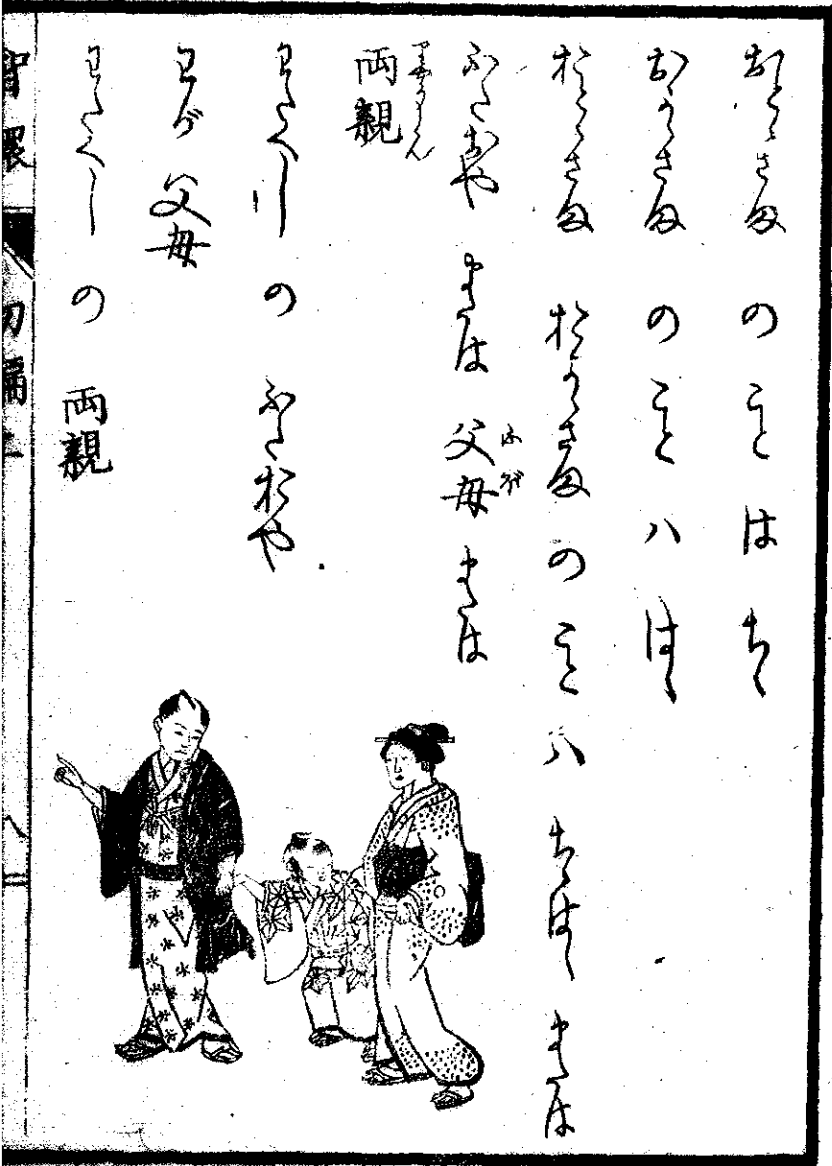 おとゝさま の こと は ちゝ
おかゝさま の こと ハ はゝ
おとゝさま おかゝさま の こと ハ ちゝはゝ または
ふたおや または 父母 または
ふぼ
両親
りやうしん
わたくし の ふたおや
わが 父母
わたくし の 両親
智環 初編 八